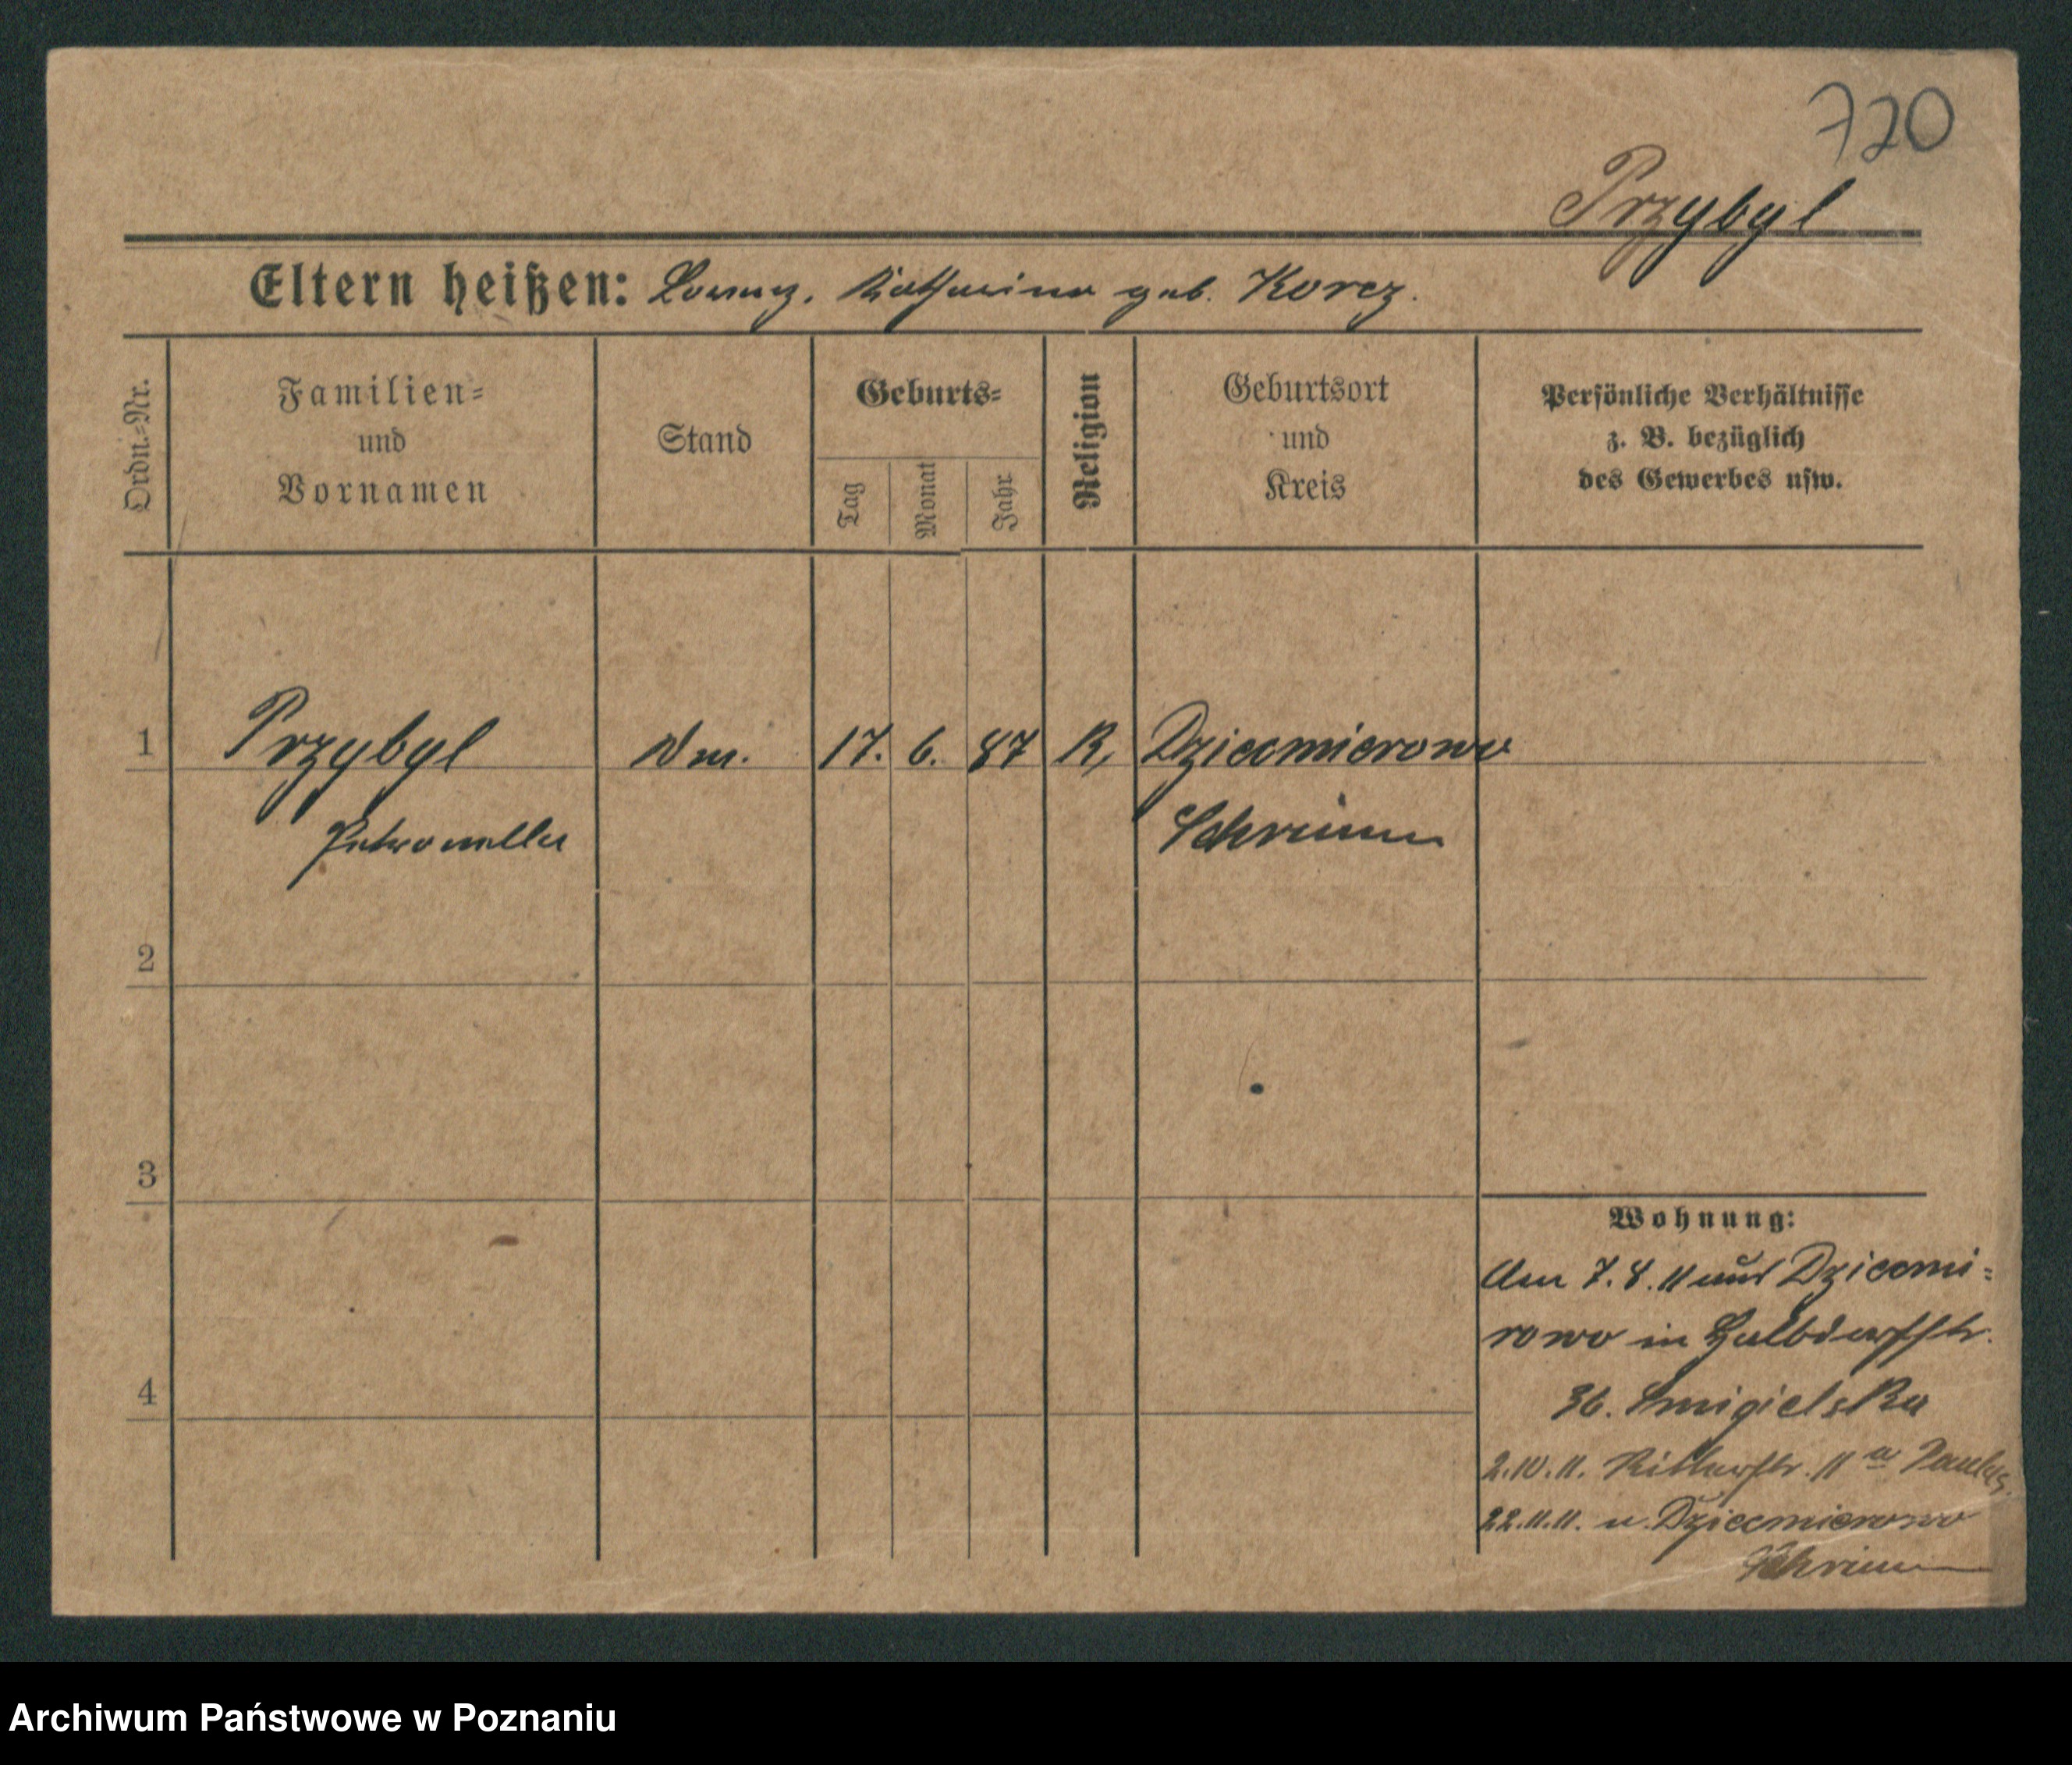 720
Przybyl
Eltern heißen: Lorenz, Katharina geb. Korcz.
Ordn.-Nr.
Familien-
und
Vornamen
Stand
Geburts-
Tag
Monat
Jahr
Religion
Geburtsort
und
Kreis
Persönliche Verhältnisse
z. B. bezüglich
des Gewerbes usw.
1 Przybyl 17. 6. 87 K, Dziecmierowo
Petronella Schrimm
2
3
4
Wohnung:
7. 8. 11 aus Dziecmi-
rowo in Halbdorfstr.
36. Smigielska
2.10.11. Ritterstr. 11 a
22.11.11. n. Dziecmierowo
Schrimm
Archiwum Państwowe w Poznaniu